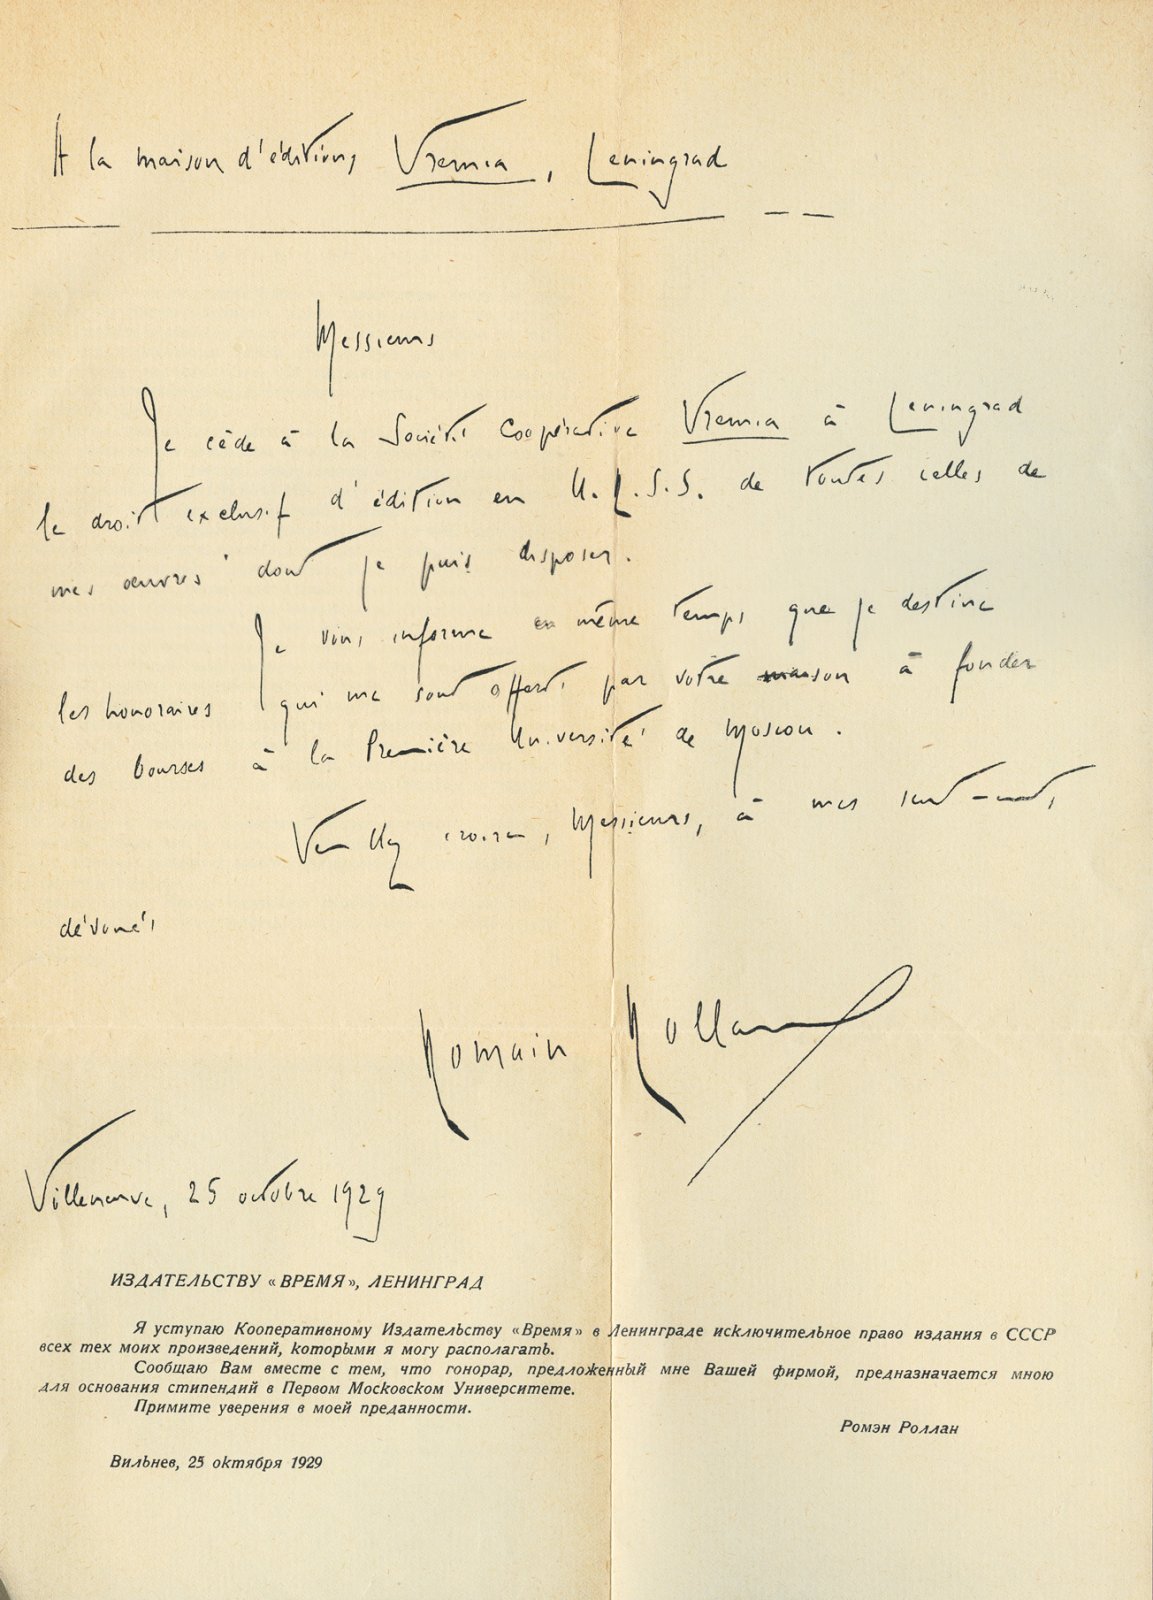 A la maison d'éditions Vremia, Leningrad
Messieurs
Je cède à la Société Coopérative Vremia à Leningrad
le droit exclusif d'édition en U.R.S.S. de toutes celles de
mes œuvres dont je puis disposer.
Je vous informe en même temps que je destine
les honoraires qui me sont offerts par votre maison à fonder
des bourses à la Première Université de Moscou.
Veuillez croire, Messieurs, à mes sentiments
dévoués
Romain Rolland
Villeneuve, 25 octobre 1929
ИЗДАТЕЛЬСТВУ «ВРЕМЯ», ЛЕНИНГРАД
Я уступаю Кооперативному Издательству «Время» в Ленинграде исключительное право издания в СССР
всех тех моих произведений, которыми я могу располагать.
Сообщаю Вам вместе с тем, что гонорар, предложенный мне Вашей фирмой, предназначается мною
для основания стипендий в Первом Московском Университете.
Примите уверения в моей преданности.
Ромэн Роллан
Вильнев, 25 октября 1929